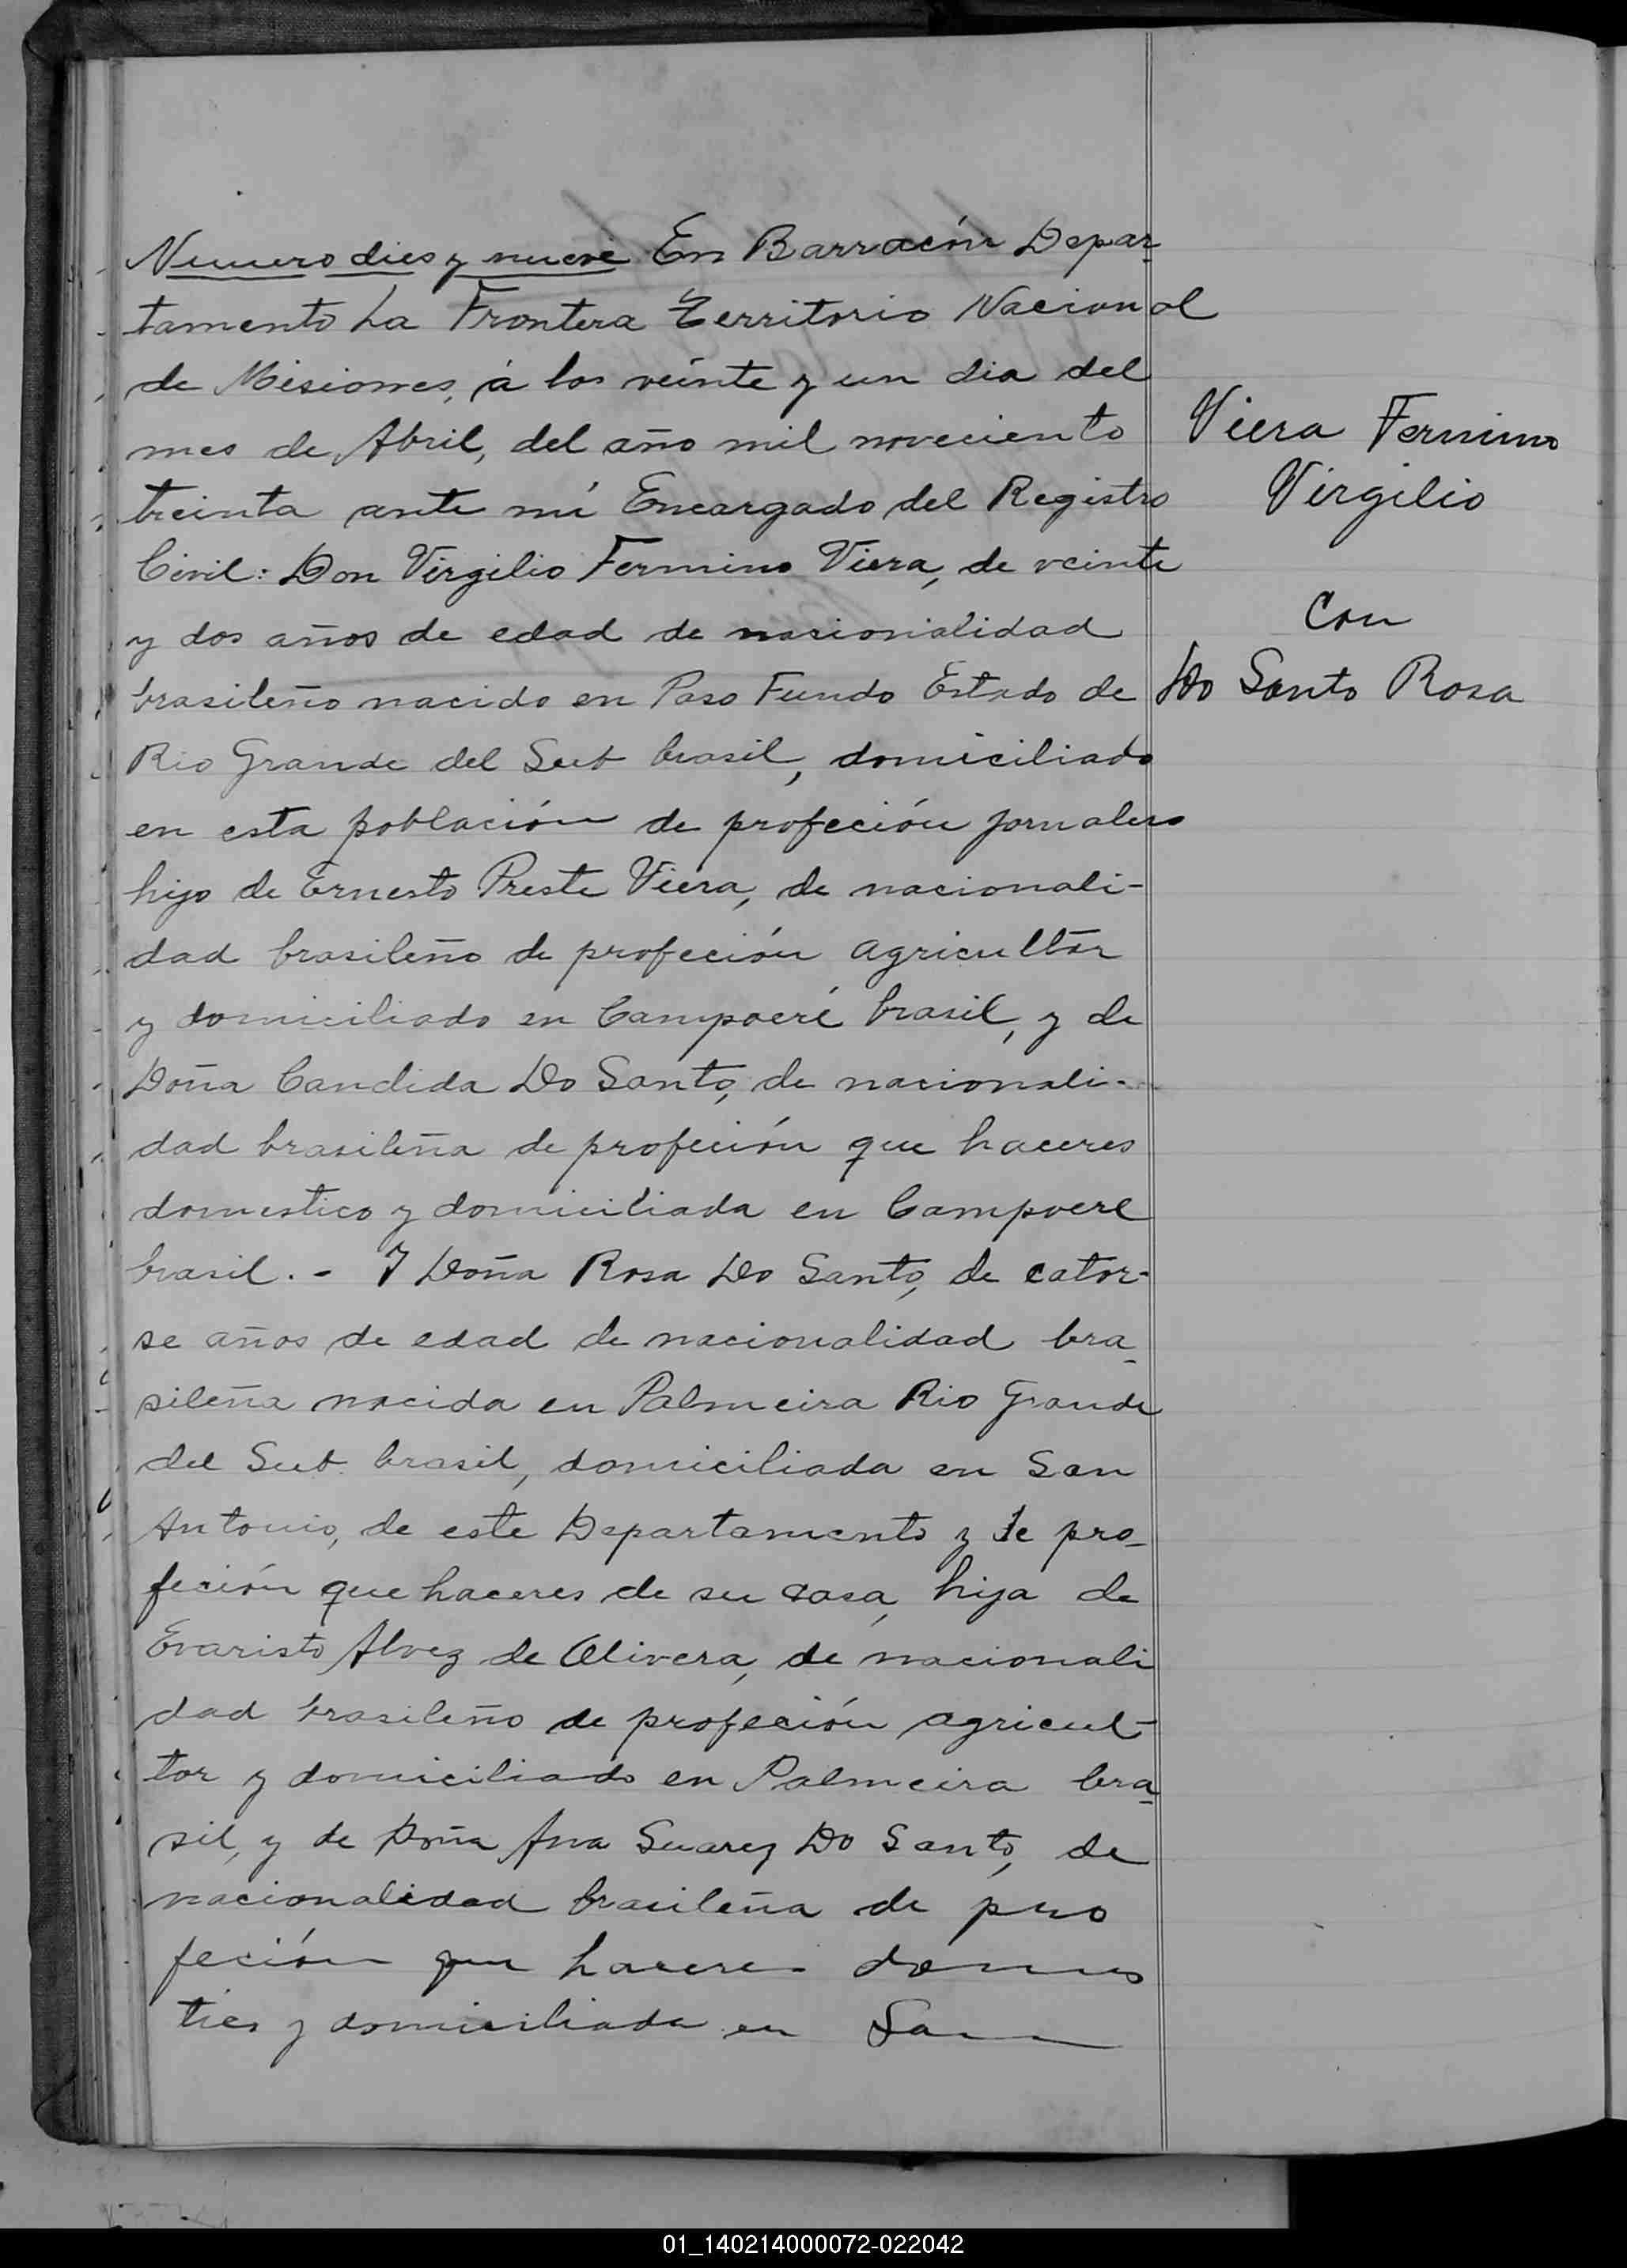 Numero dies y nueve En Barracón Depar-
tamento La Frontera Territorio Nacional
de Misiones, á los veinte y un dia del
mes de Abril, del año mil noveciento
treinta ante mí Encargado del Registro
Civil: Don Virgilio Fermino Viera, de veinte
y dos años de edad de nasionalidad
brasileño nacido en Paso Fundo Estado de
Rio Grande del Sub brasil, domiciliado
en esta población de profeción jornalero
hijo de Ernesto Preste Viera, de nacionali-
dad brasileño de profeción agricultor
y domiciliado en Campoeré brasil, y de
Doña Candida Do Santo, de nacionali-
dad brasileña de profeción que haceres
domestico y domiciliada en Campoere
brasil. - Y Doña Rosa Do Santo, de cator-
se años de edad de nacionalidad bra-
sileña nacida en Palmeira Rio Grande
del Sub brasil, domiciliada en San
Antonio, de este Departamento y de pro-
feción que haceres de su casa, hija de
Evaristo Alvez de Olivera, de nacionali
dad brasileño de profeción agricul-
tor y domiciliado en Palmeira bra-
sil, y de Doña Ana Suarez Do Santo, de
nacionalidad brasileña de pro
feción que haceres domes
tico y domiciliada en San
Viera Fermino
Virgilio
Con
Do Santo Rosa
01_140214000072-022042